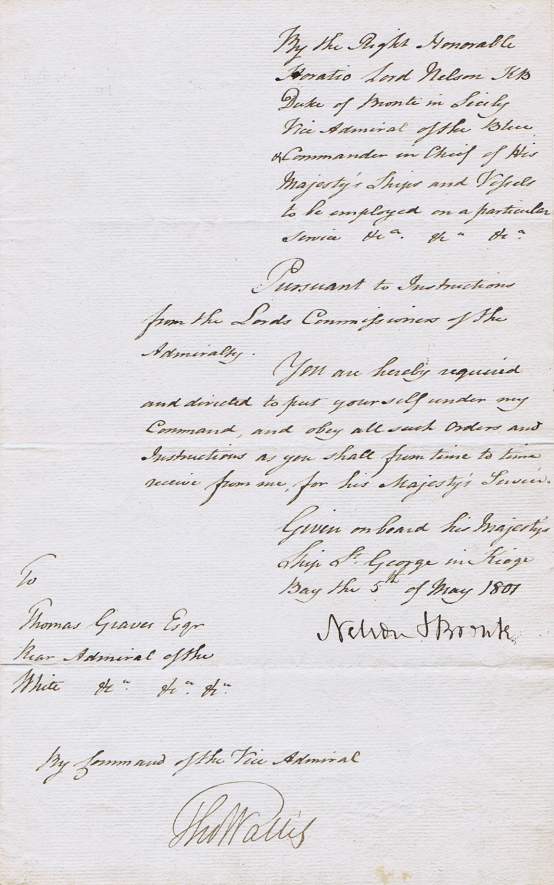 By the Right Honorable
Horatio Lord Nelson KB
Duke of Bronte in Sicily
Vice Admiral of the Blue
& Commander in Chief of His
Majesty's Ships and Vessels
to be employed on a particular
Service &ca. &ca &ca
Pursuant to Instructions
from the Lords Commissioners of the
Admiralty.
You are hereby required
and directed to put yourself under my
Command, and obey all such Orders and
Instructions as you shall from time to time
receive from me, for his Majesty's Service.
Given on board his Majesty's
Ship St. George in Kioge
Bay the 5th of May 1801
Nelson & Bronte
To
Thomas Graves Esqr
Rear Admiral of the
White &ca. &ca. &ca
By Command of the Vice Admiral
Tho Wallis